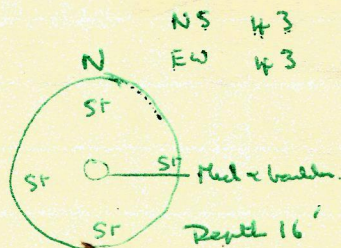 NS 43
EW 43
N
St
St
St
Med & boulder.
St
Depth 16'